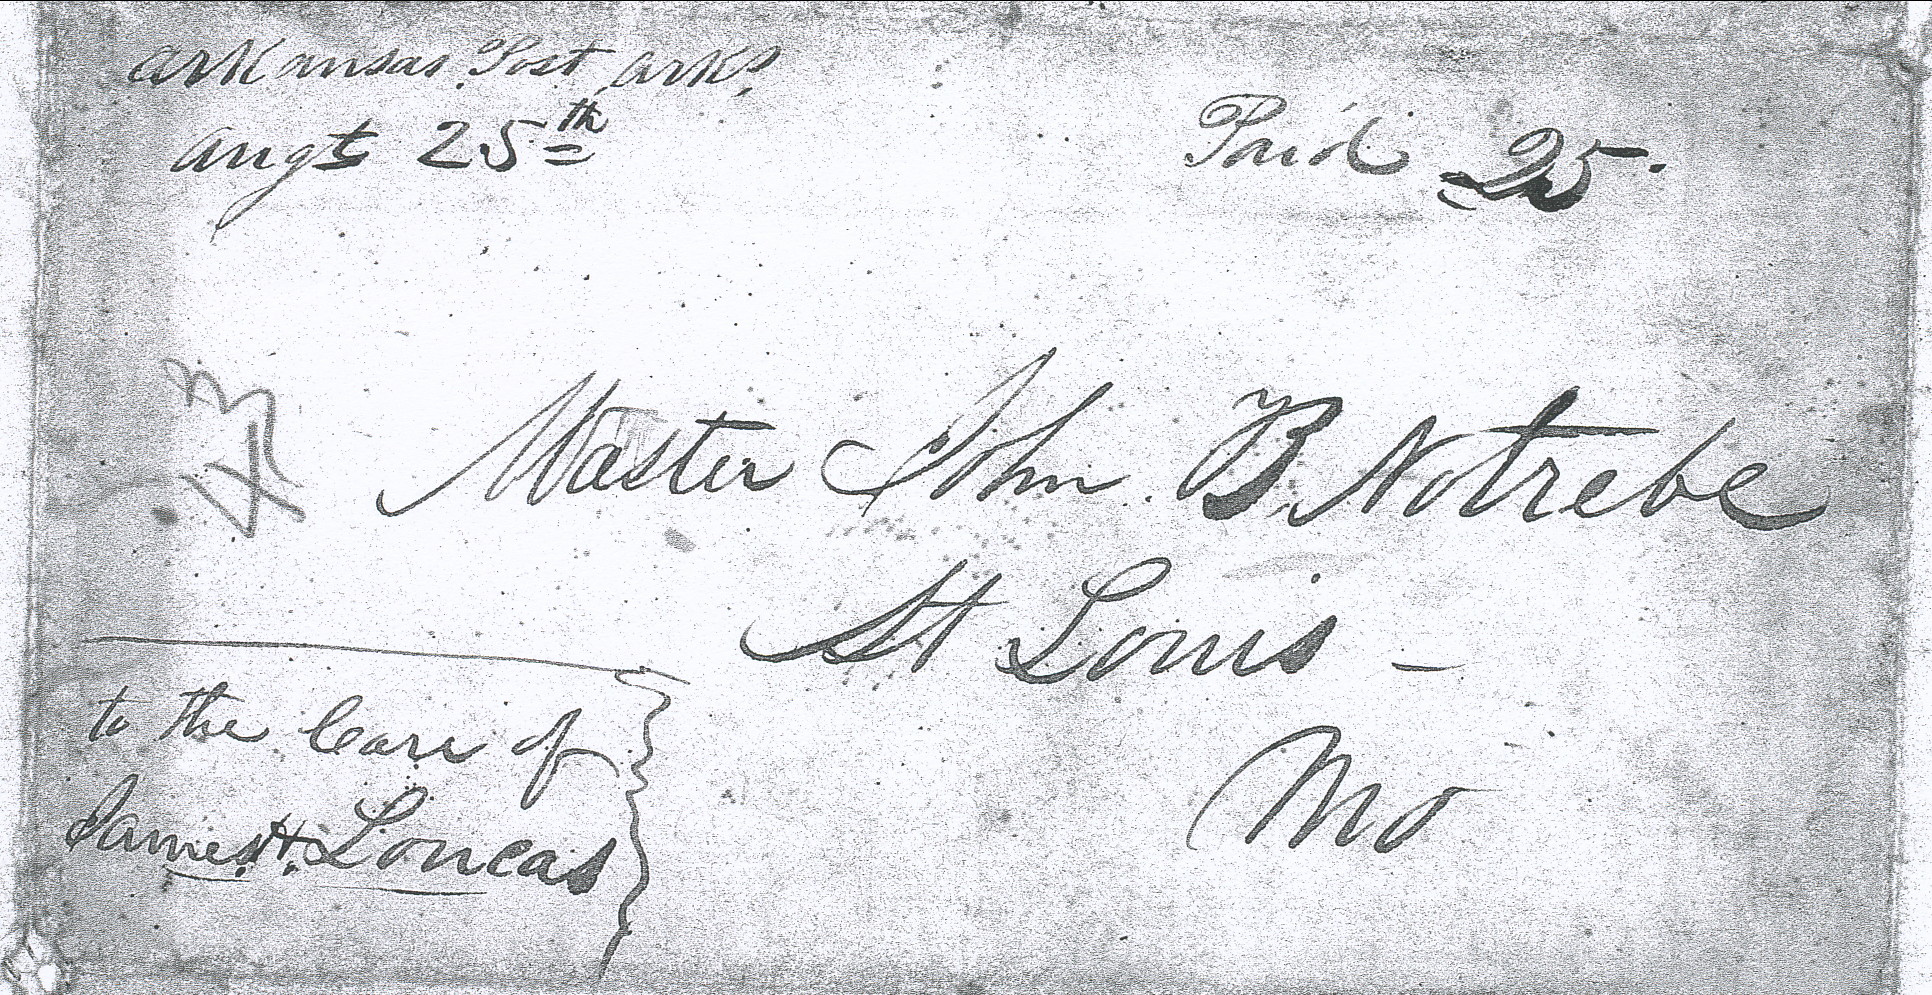 Arkansas Post Arks,
Augt 25th
Paid 25.
43
Master John B Notrebe
St Louis -
Mo
to the Care of
James H. Loucas